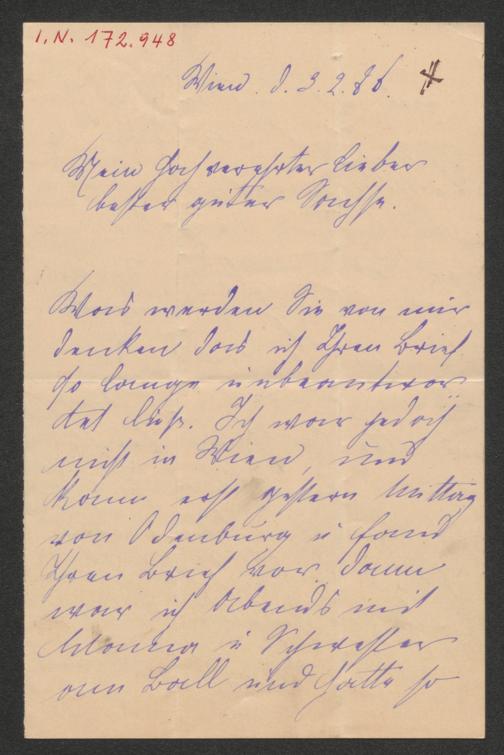 I.N. 172.948
Wien. d. 3.2.86.
Mein hochverehrter lieber
bester guter Sachse.
Was werden Sie von mir
denken das ich Ihren Brief
so lange unbeantwor
tet ließ. Ich war jedoch
nicht in Wien, und
kam erst gestern Mittag
von Ödenburg u fand
Ihren Brief vor. Dann
war ich Abends mit
Mama u Schwester
am Ball und hatte so